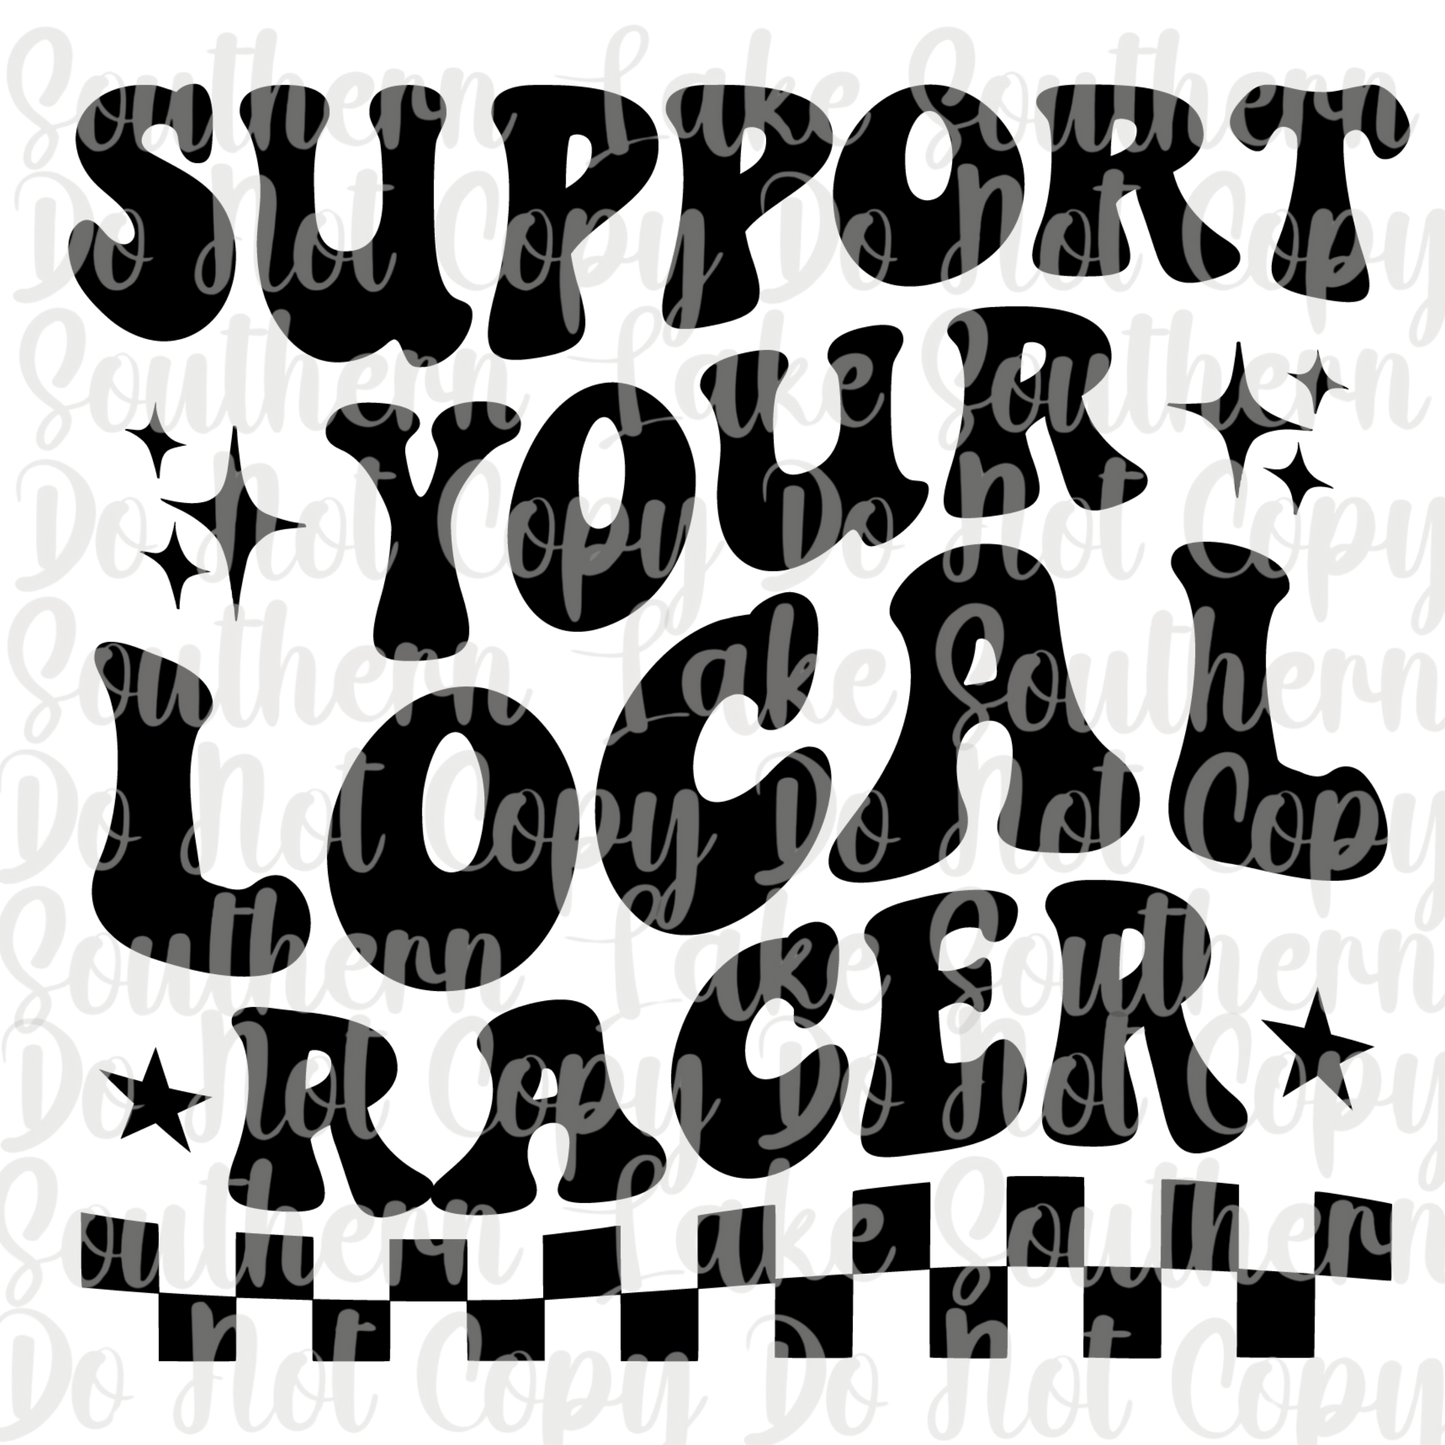 SUPPORT
YOUR
LOCAL
RACER
Southern Lake Southern
Do Not Copy Do Not Copy
Southern Lake Southern
Do Not Copy Do Not Copy
Southern Lake Southern
Do Not Copy Do Not Copy
Southern Lake Southern
Do Not Copy Do Not Copy
Southern Lake Southern
Do Not Copy Do Not Copy